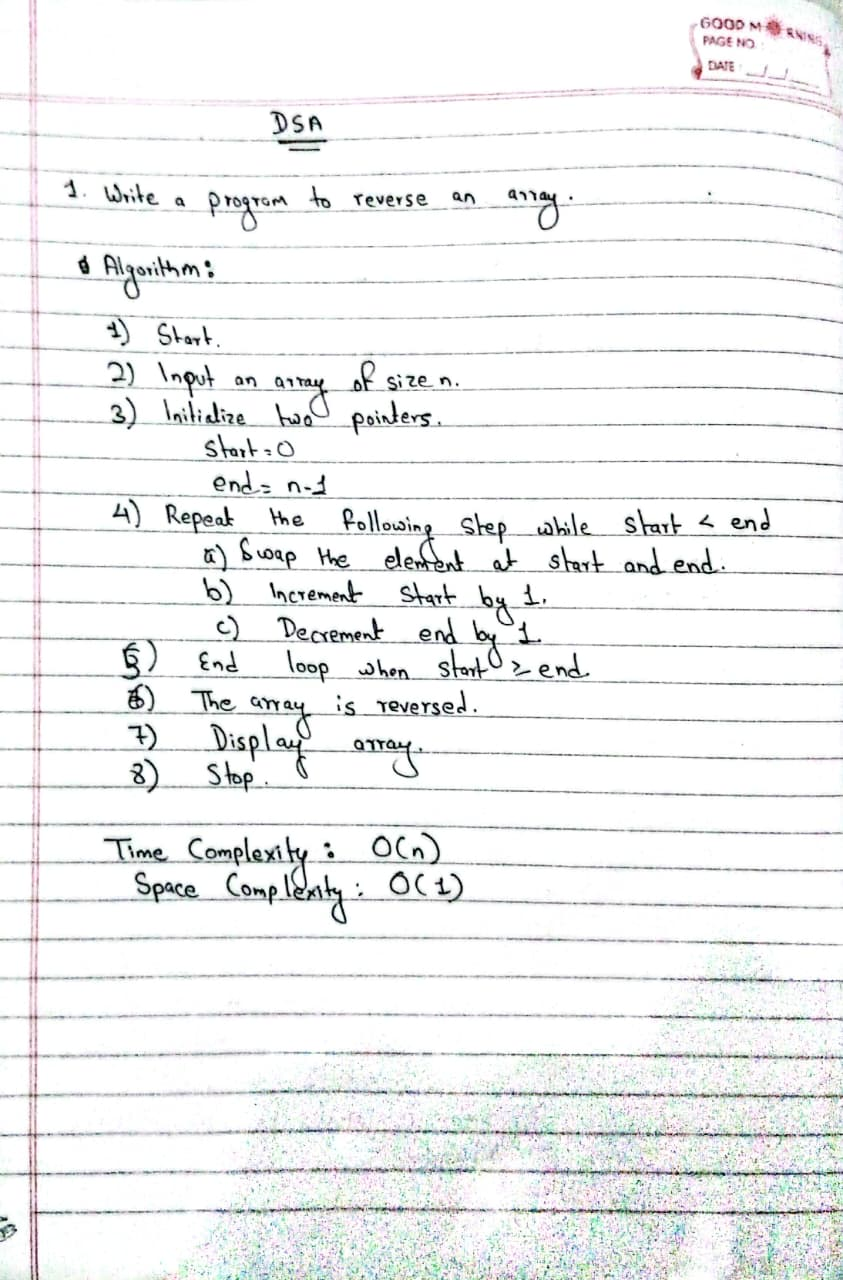 GOOD MORNING
PAGE NO.
DATE:
DSA
1. Write a program to reverse an array.
Algorithm:
1) Start.
2) Input an array of size n.
3) Initialize two pointers.
start = 0
end = n-1
4) Repeat the following step while start < end
a) Swap the element at start and end.
b) Increment start by 1.
c) Decrement end by 1.
5) End loop when start ≥ end
6) The array is reversed.
7) Display array.
8) Stop.
Time Complexity: O(n)
Space Complexity: O(1)